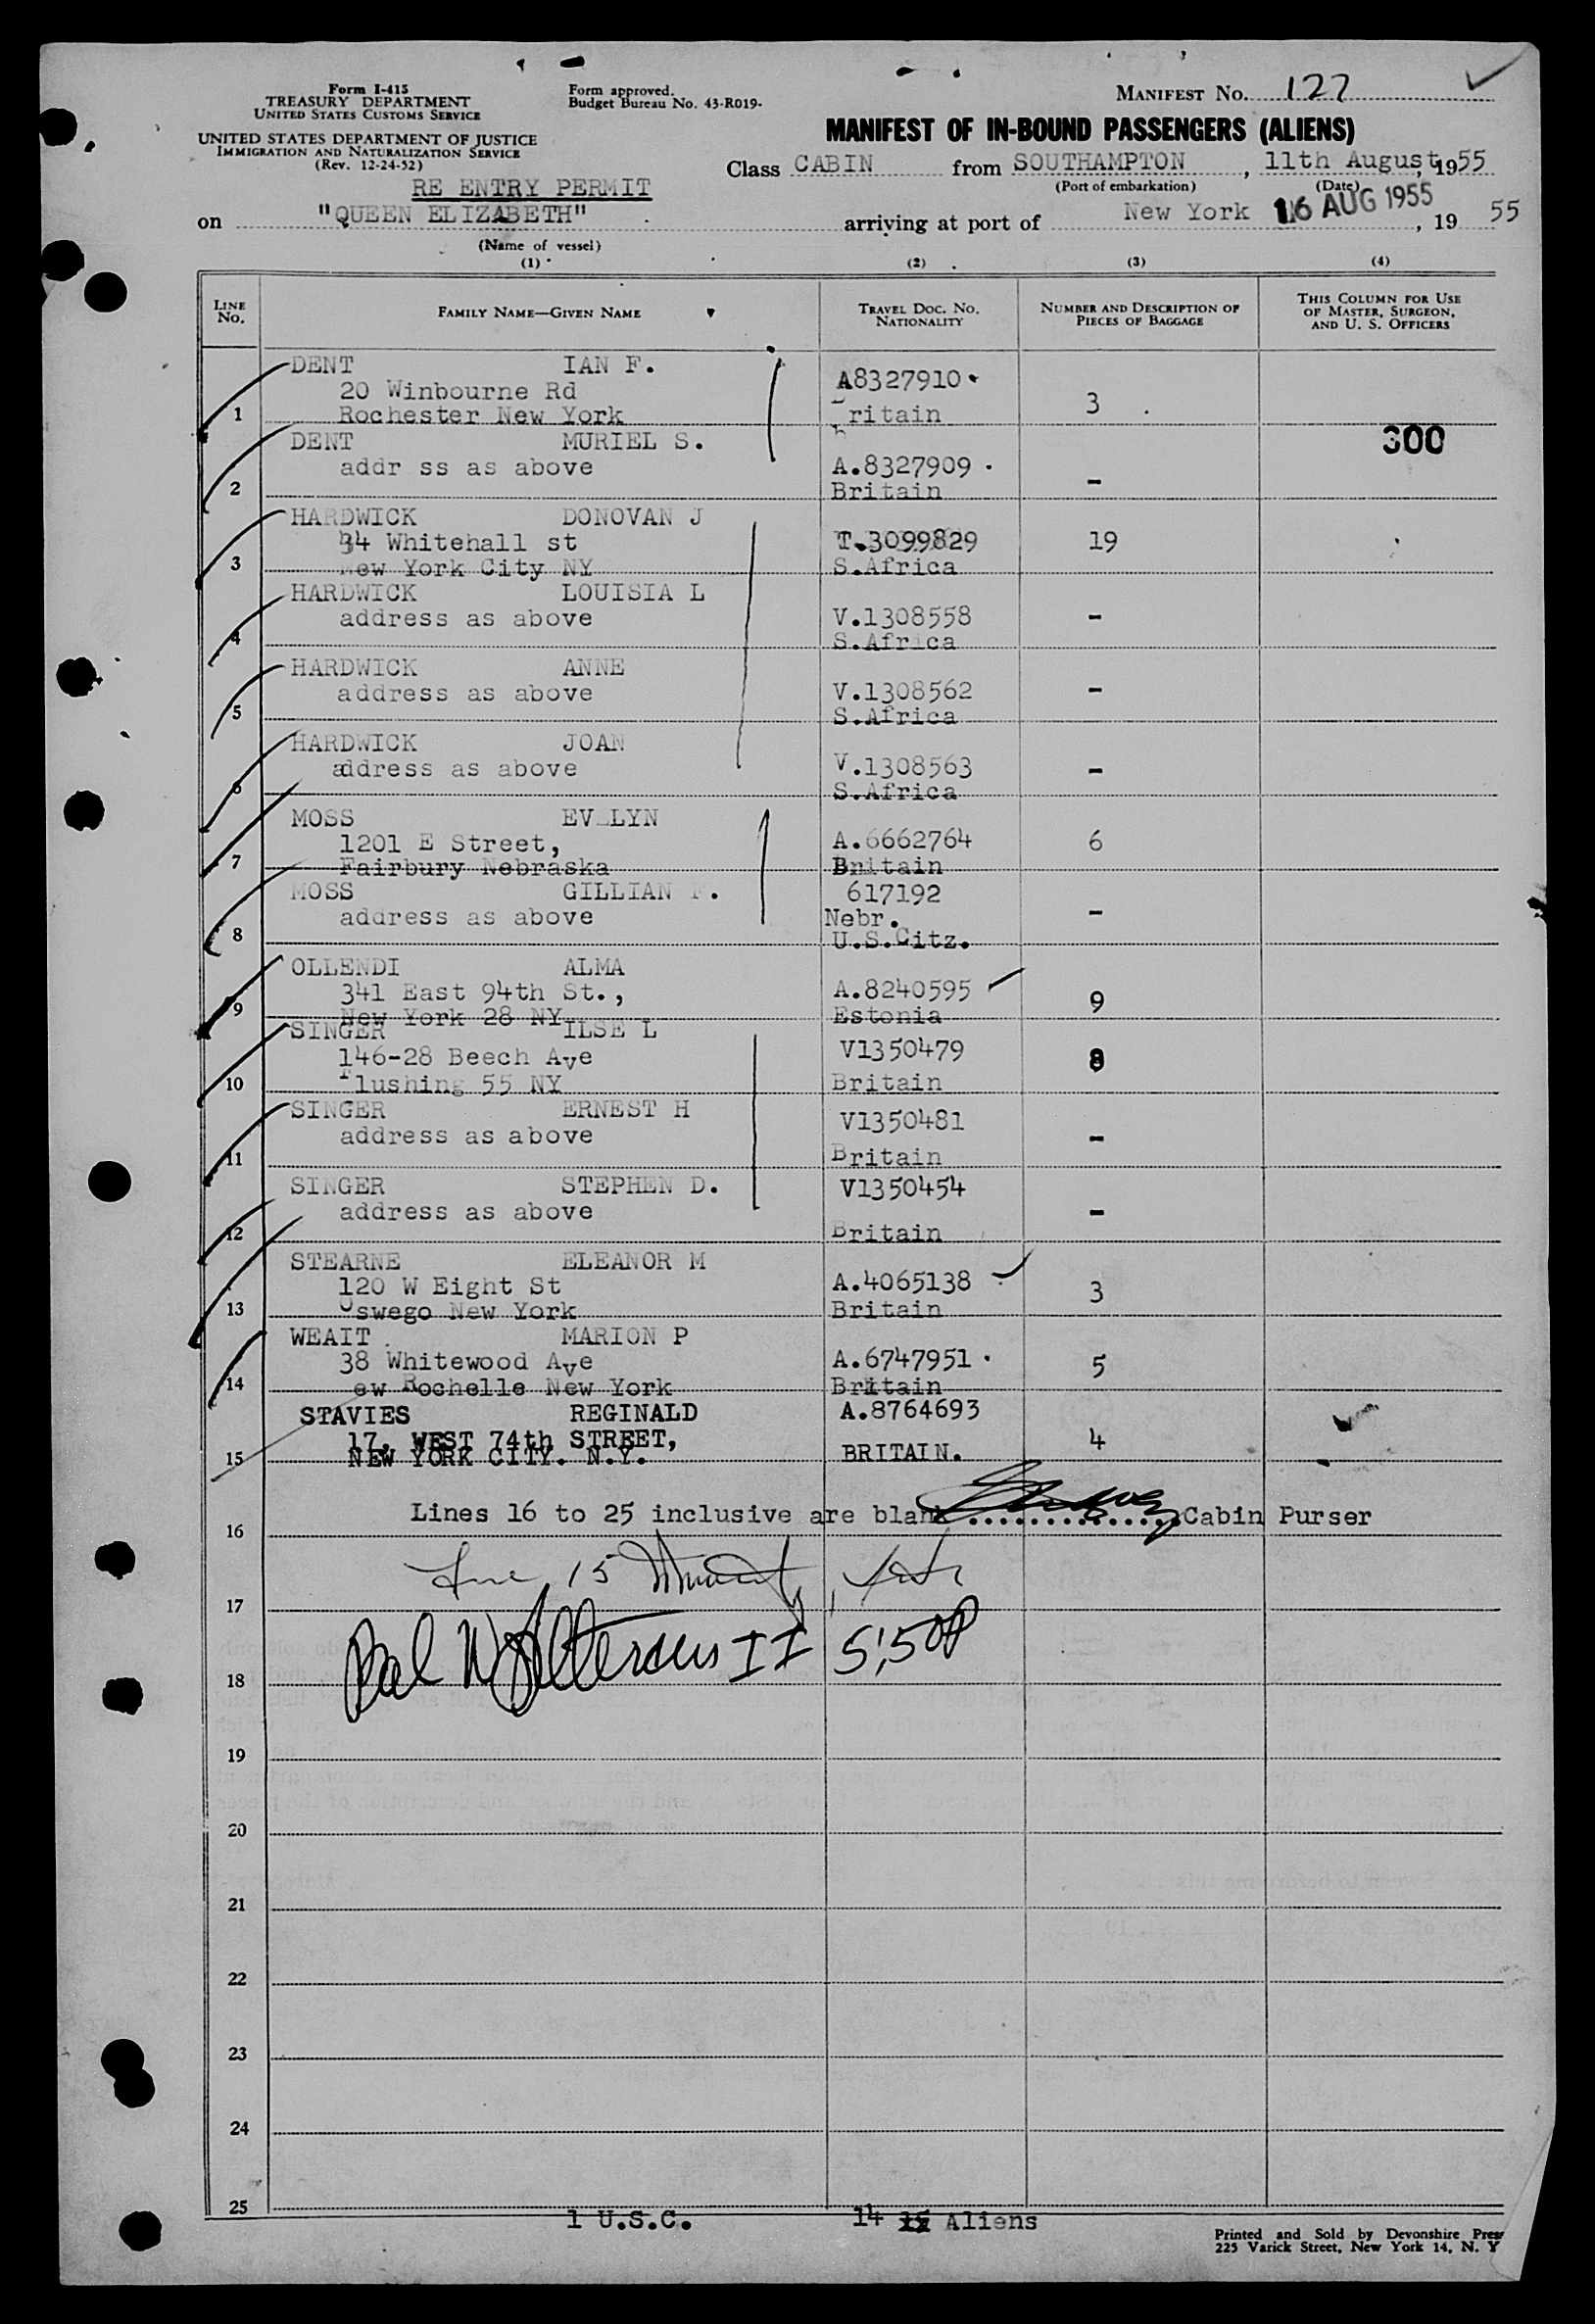 Form I-415
TREASURY DEPARTMENT
UNITED STATES CUSTOMS SERVICE
UNITED STATES DEPARTMENT OF JUSTICE
IMMIGRATION AND NATURALIZATION SERVICE
(Rev. 12-24-52)
Form approved.
Budget Bureau No. 43-R019.
MANIFEST NO. 127
MANIFEST OF IN-BOUND PASSENGERS (ALIENS)
Class CABIN from SOUTHAMPTON, 11th August, 1955
(Port of embarkation) (Date)
RE ENTRY PERMIT
on "QUEEN ELIZABETH" arriving at port of New York 16 AUG 1955, 19 55
(Name of vessel)
(1) (2) (3) (4)
LINE NO. FAMILY NAME—GIVEN NAME TRAVEL DOC. NO. NATIONALITY NUMBER AND DESCRIPTION OF PIECES OF BAGGAGE THIS COLUMN FOR USE OF MASTER, SURGEON, AND U. S. OFFICERS
DENT IAN F.
20 Winbourne Rd A8327910
1 Rochester New York ritain 3
DENT MURIEL S. 300
addr ss as above A.8327909
2 Britain -
HARDWICK DONOVAN J
34 Whitehall st T.3099829 19
3 ew York City NY S.Africa
HARDWICK LOUISIA L
address as above V.1308558 -
4 S.Africa
HARDWICK ANNE
address as above V.1308562 -
5 S.Africa
HARDWICK JOAN
address as above V.1308563 -
6 S.Africa
MOSS EV LYN
1201 E Street, A.6662764 6
7 Fairbury Nebraska Britain
MOSS GILLIAN . 617192
address as above Nebr. -
8 U.S.Citz.
OLLENDI ALMA
341 East 94th St., A.8240595 9
9 New York 28 NY Estonia
SINGER ILSE L
146-28 Beech Ave V1350479 8
10 Flushing 55 NY Britain
SINGER ERNEST H
address as above V1350481 -
11 Britain
SINGER STEPHEN D. V1350454
address as above -
12 Britain
STEARNE ELEANOR M
120 W Eight St A.4065138 3
13 Oswego New York Britain
WEAIT MARION P
38 Whitewood Ave A.6747951 5
14 ew Rochelle New York Britain
STAVIES REGINALD A.8764693
17, WEST 74th STREET, 4
15 NEW YORK CITY. N.Y. BRITAIN.
16 Lines 16 to 25 inclusive are blank Cabin Purser
17 15
18 II
19
20
21
22
23
24
25
1 U.S.C. 14 Aliens
Printed and Sold by Devonshire Press
225 Varick Street, New York 14, N. Y